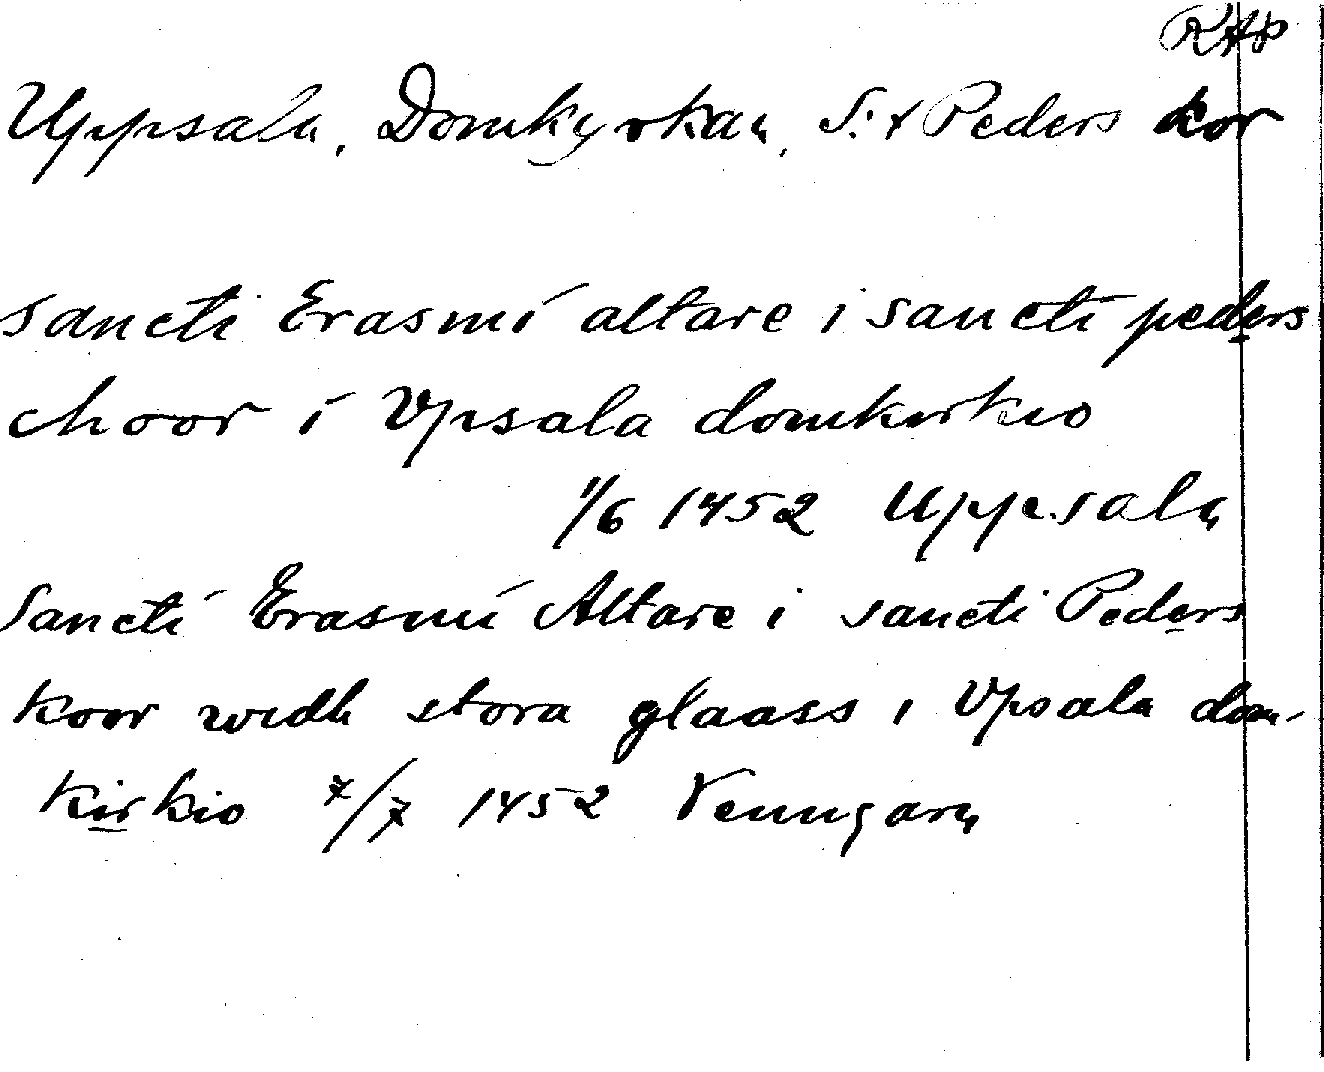 RAP
Uppsala, Domkyrkan, S:t Peders kor
sancti Erasmi altare i sancti peders
choor i Vpsala domkirkio
1/6 1452 Uppsala
Sancti Erasmi Altare i sancti Peders
koor widh stora glaass i Vpsala dom-
kirkio 7/7 1452 Venngarn